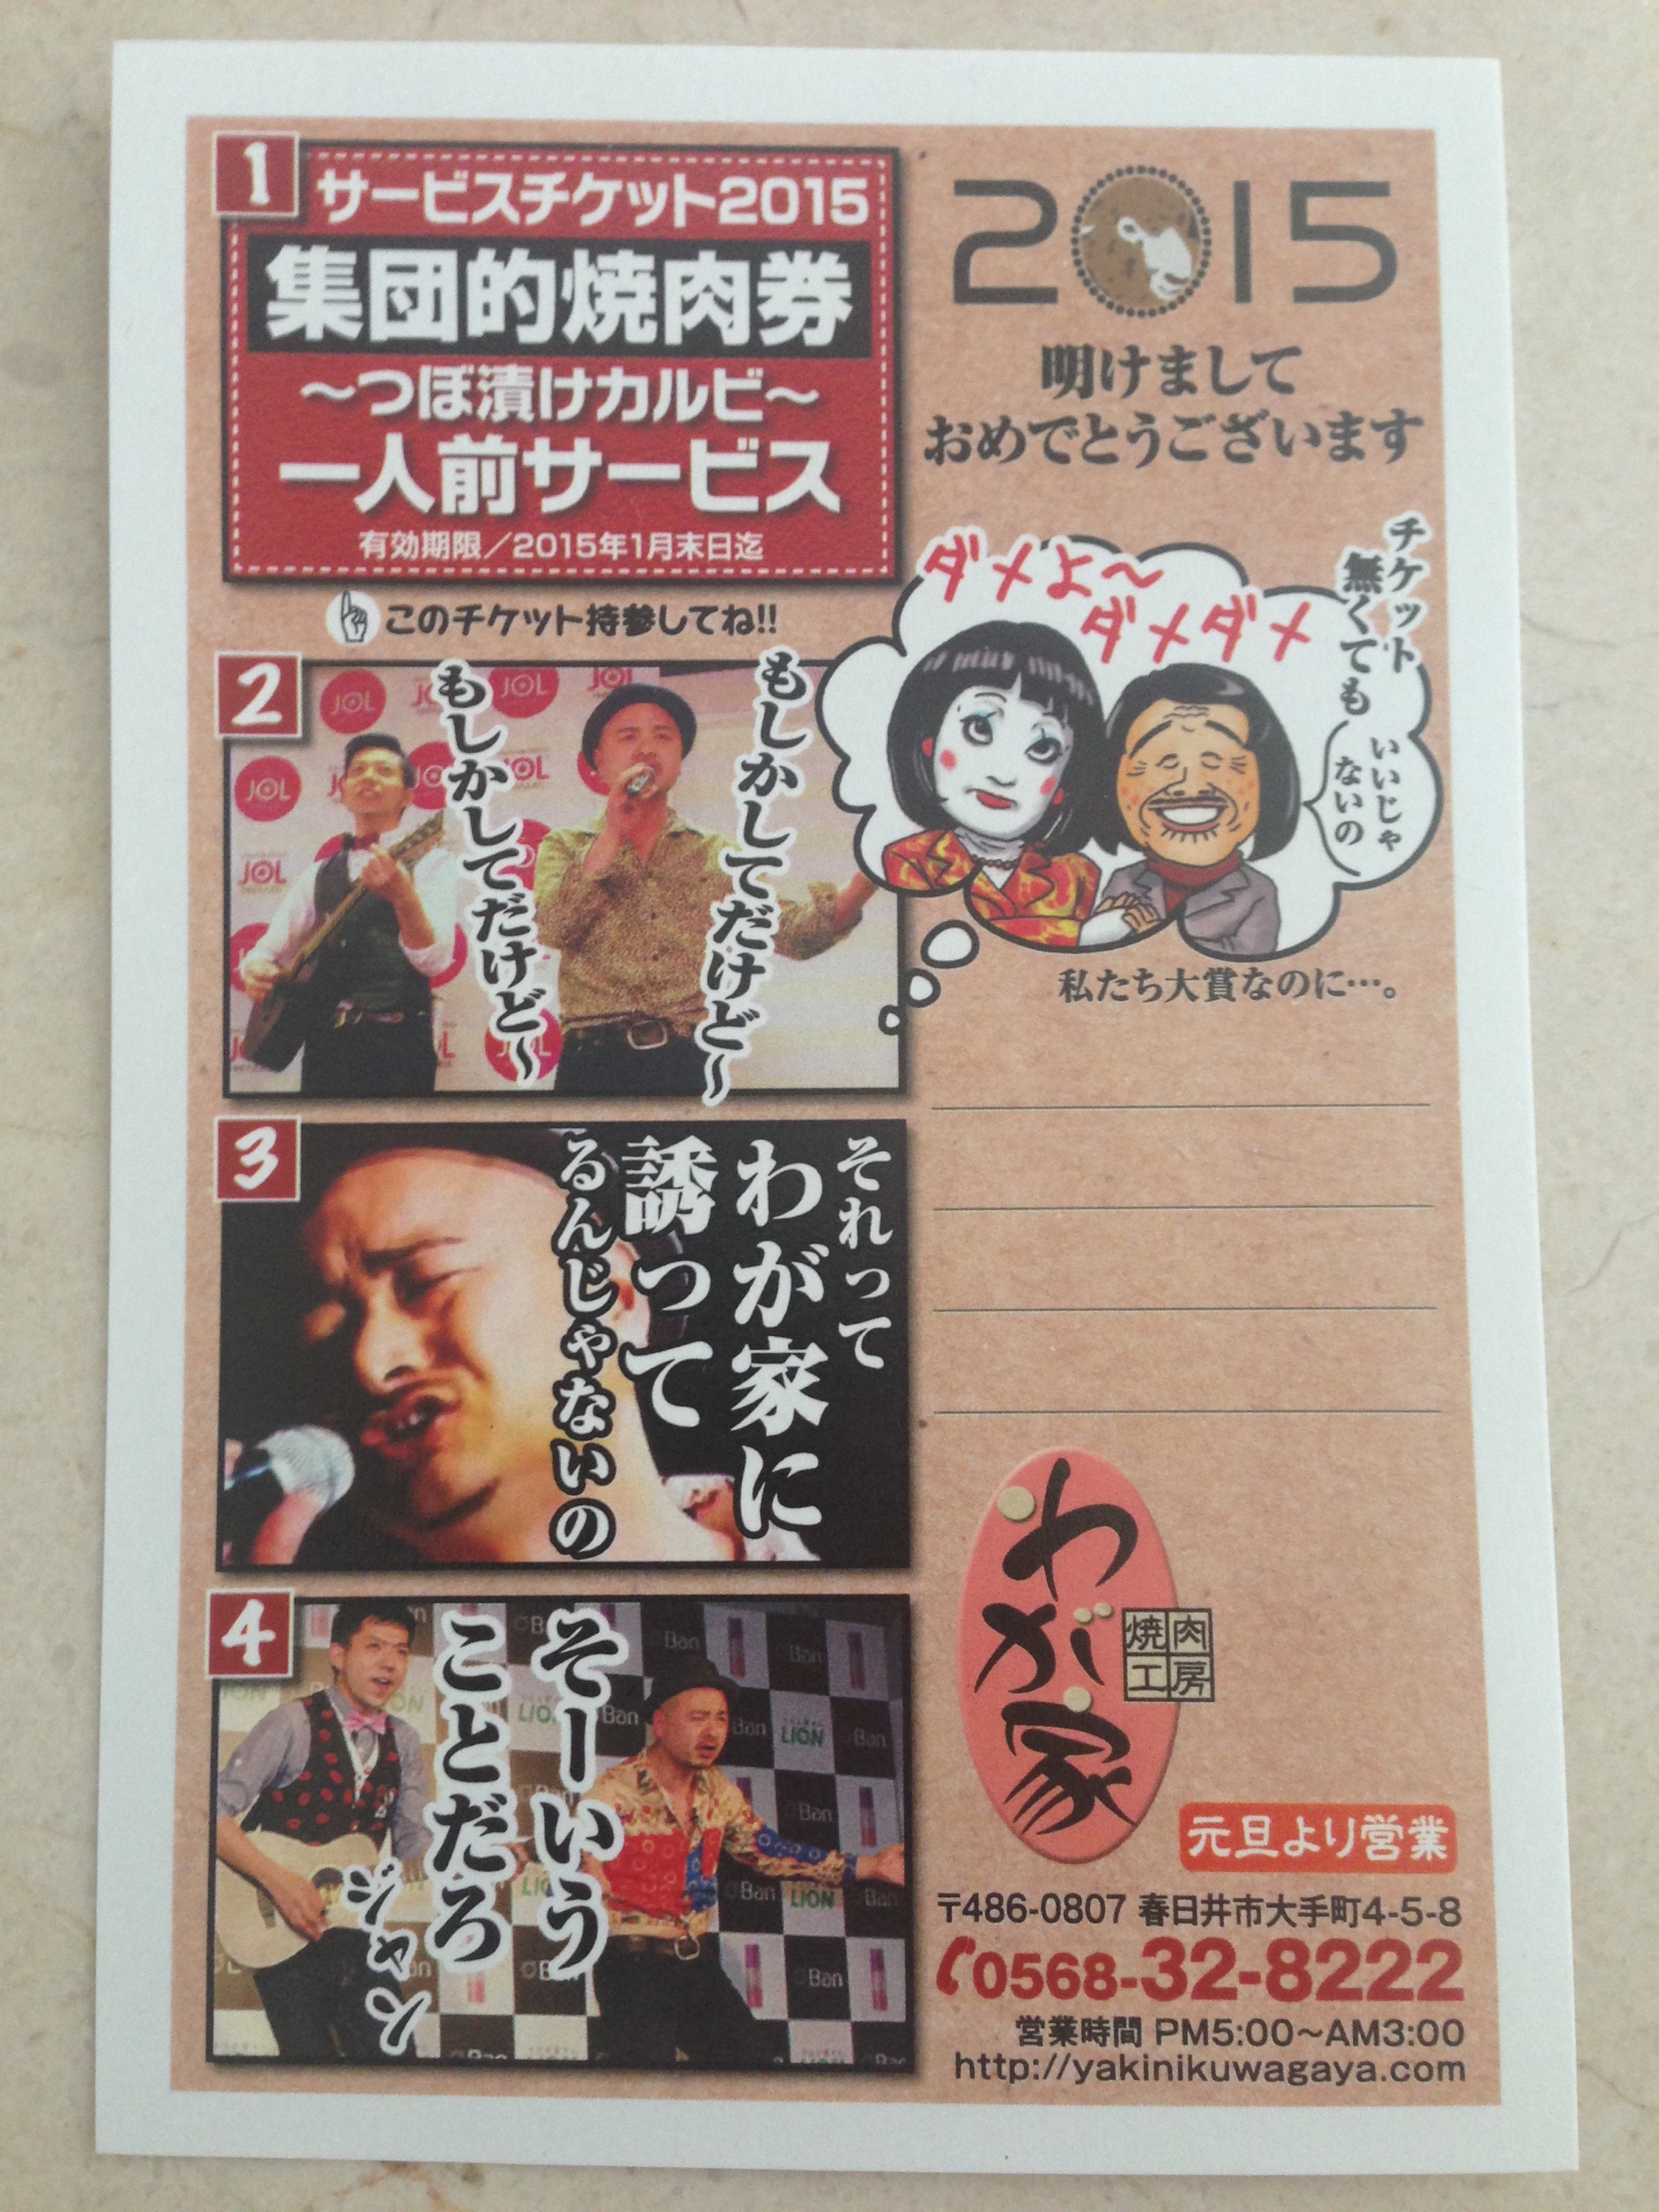 1
サービスチケット2015
集団的焼肉券
～つぼ漬けカルビ～
一人前サービス
有効期限／2015年1月末日迄
このチケット持参してね!!
2015
明けまして
おめでとうございます
チケット
無くても
いいじゃ
ないの
ダメよ～
ダメダメ
私たち大賞なのに…。
2
もしかしてだけど～
もしかしてだけど～
JOL
JOL
JOL
JOL
JOL
3
それって
わが家に
誘って
るんじゃないの
4
そーいう
ことだろ
ジャン
Ban
LION
Ban
LION
Ban
Ban
Ban
LION
Ban
Ban
わが家
焼肉
工房
元旦より営業
〒486-0807 春日井市大手町4-5-8
0568-32-8222
営業時間 PM5:00～AM3:00
http://yakinikuwagaya.com